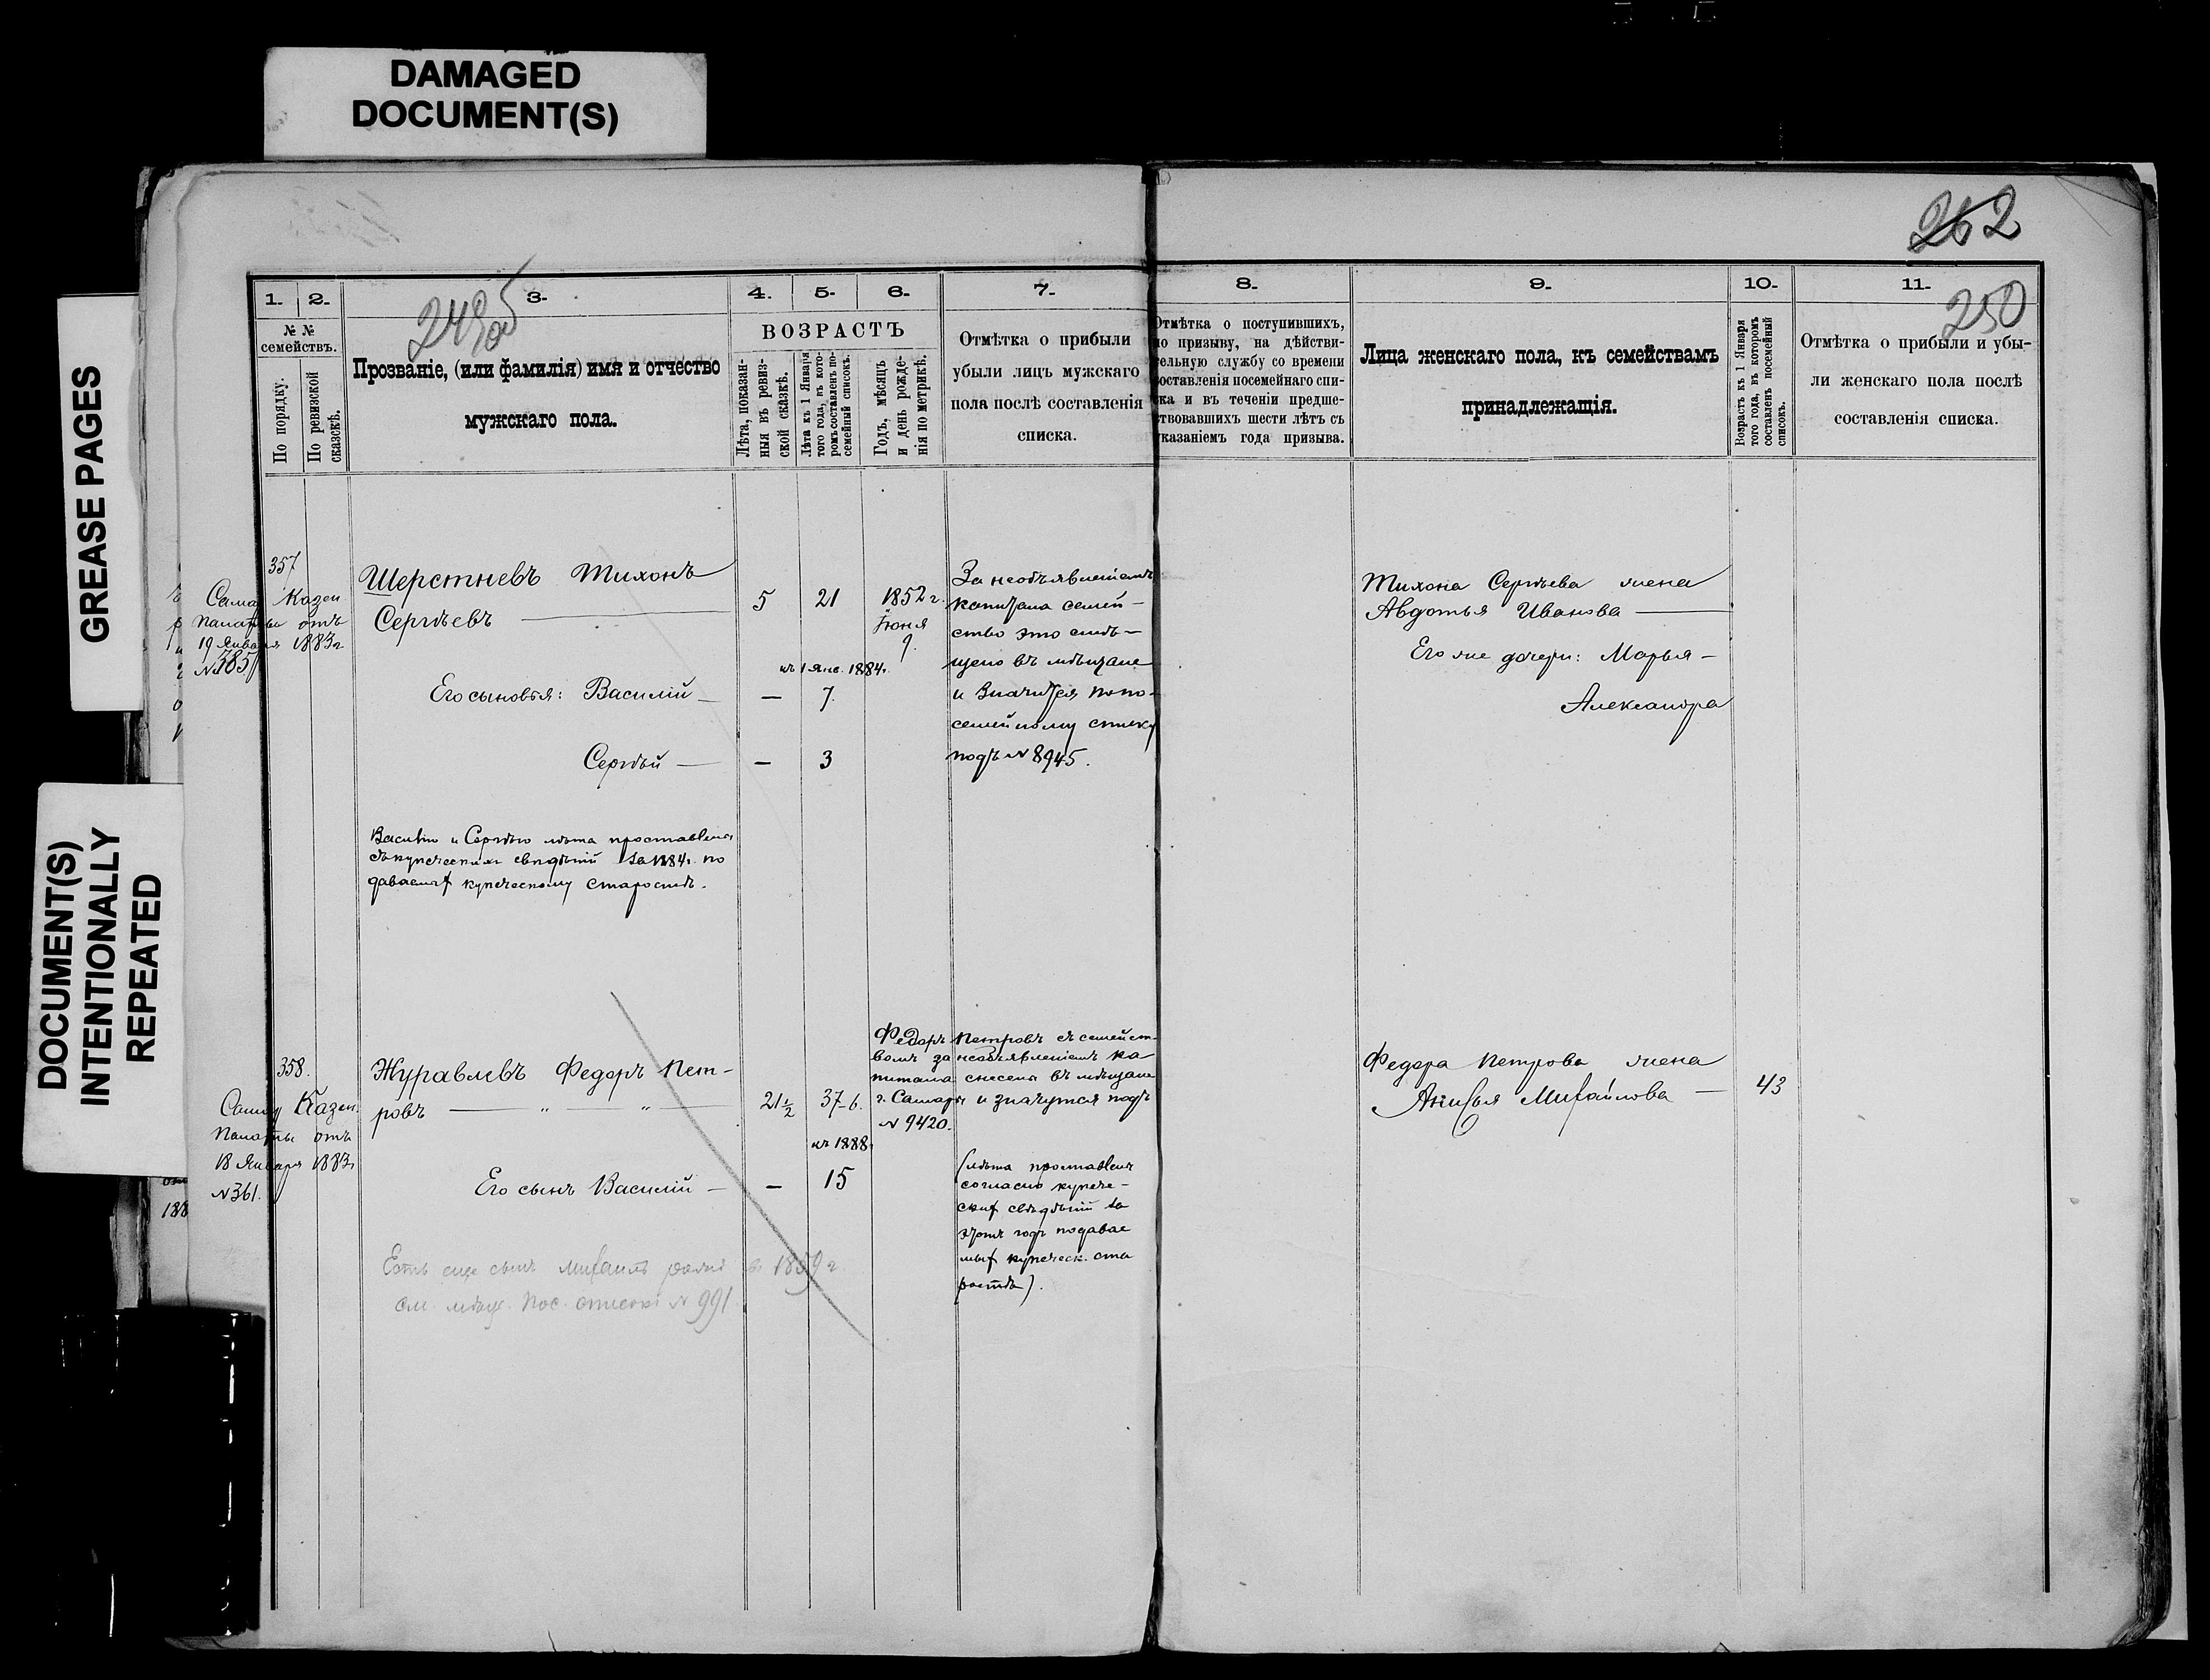 DAMAGED
DOCUMENT(S)
GREASE PAGES
DOCUMENT(S)
INTENTIONALLY
REPEATED
262
249 об
250
1.
2.
3.
4.
5.
6.
7.
8.
9.
10.
11.
№ №
семействъ.
По порядку.
По ревизской
сказскѣ.
Прозваніе, (или фамилія) имя и отчество
мужскаго пола.
ВОЗРАСТЪ
Лѣта, показан-
ныя въ ревиз-
ской сказкѣ.
Лѣта къ 1 Января
того года, въ кото-
ромъ составленъ по-
семейный списокъ.
Годъ, мѣсяцъ
и день рожде-
нія по метрикѣ.
Отмѣтка о прибыли
убыли лицъ мужскаго
пола послѣ составленія
списка.
Отмѣтка о поступившихъ,
по призыву, на дѣйстви-
тельную службу со времени
составленія посемейнаго спи-
ска и въ теченіи предше-
ствовавшихъ шести лѣтъ съ
указаніемъ года призыва.
Лица женскаго пола, къ семействамъ
принадлежащія.
Возрастъ къ 1 Января
того года, въ которомъ
составленъ посемейный
списокъ.
Отмѣтка о прибыли и убы-
ли женскаго пола послѣ
составленія списка.
357
Самар Казен
Палаты отъ
19 Января 1883 г
№ 385
Шерстневъ Тихонъ
Сергѣевъ
5
21
1852 г.
Іюня
9.
къ 1 Янв. 1884 г.
Его сыновья: Василій —
—
7.
Сергѣй —
—
3
За необъявленіемъ
капитала семей-
ство это снѣ-
щено въ мѣщане
и значится по по-
семейному списку
подъ № 8945.
Тихона Сергѣева жена
Авдотья Иванова —
Его же дочери: Марья —
Александра
Василію и Сергѣю лѣта проставлены
съ купеческихъ свѣдѣній за 1884 г. по
даваемых купеческому старостѣ.
358.
Самар Казен.
Палаты отъ
18 Января 1883 г
№ 361.
Журавлевъ Федоръ Пет-
ровъ — " — " —
21½
37-6.
Федоръ Петровъ съ семейст-
вомъ за необъявленіемъ ка
питала снесены въ мѣщане
г. Самары и значутся подъ
№ 9420.
къ 1888 г
Его сынъ Василій —
—
15
(лѣта проставлен
согласно купече-
ских свѣдѣній за
этотъ годъ подавае
мых купеческ. ста
ростѣ).
Федора Петрова жена
Анисья Михайлова —
43
Есть еще сынъ Михаилъ в 1859 г
см. мѣщ. пос. списокъ № 991